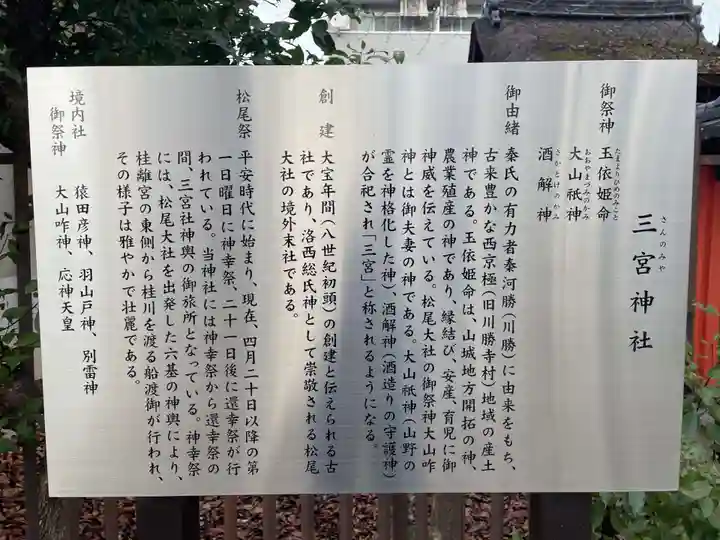 さんのみや
三宮神社
御祭神
たまよりひめのみこと
玉依姫命
おおやまづみのかみ
大山祇神
さかとけのかみ
酒解神
御由緒
秦氏の有力者秦河勝(川勝)に由来をもち、
古来豊かな西京極(旧川勝寺村)地域の産土
神である。玉依姫命は、山城地方開拓の神、
農業殖産の神であり、縁結び、安産、育児に御
神威を伝えている。松尾大社の御祭神大山咋
神とは御夫妻の神である。大山祇神(山野の
霊を神格化した神)、酒解神(酒造りの守護神)
が合祀され「三宮」と称されるようになる。
創建
大宝年間(八世紀初頭)の創建と伝えられる古
社であり、洛西総氏神として崇敬される松尾
大社の境外末社である。
松尾祭
平安時代に始まり、現在、四月二十日以降の第
一日曜日に神幸祭、二十一日後に還幸祭が行
われている。当神社には神幸祭から還幸祭の
間、三宮社神輿の御旅所となっている。神幸祭
には、松尾大社を出発した六基の神輿により、
桂離宮の東側から桂川を渡る船渡御が行われ、
その様子は雅やかで壮麗である。
境内社
御祭神
猿田彦神、羽山戸神、別雷神
大山咋神、応神天皇